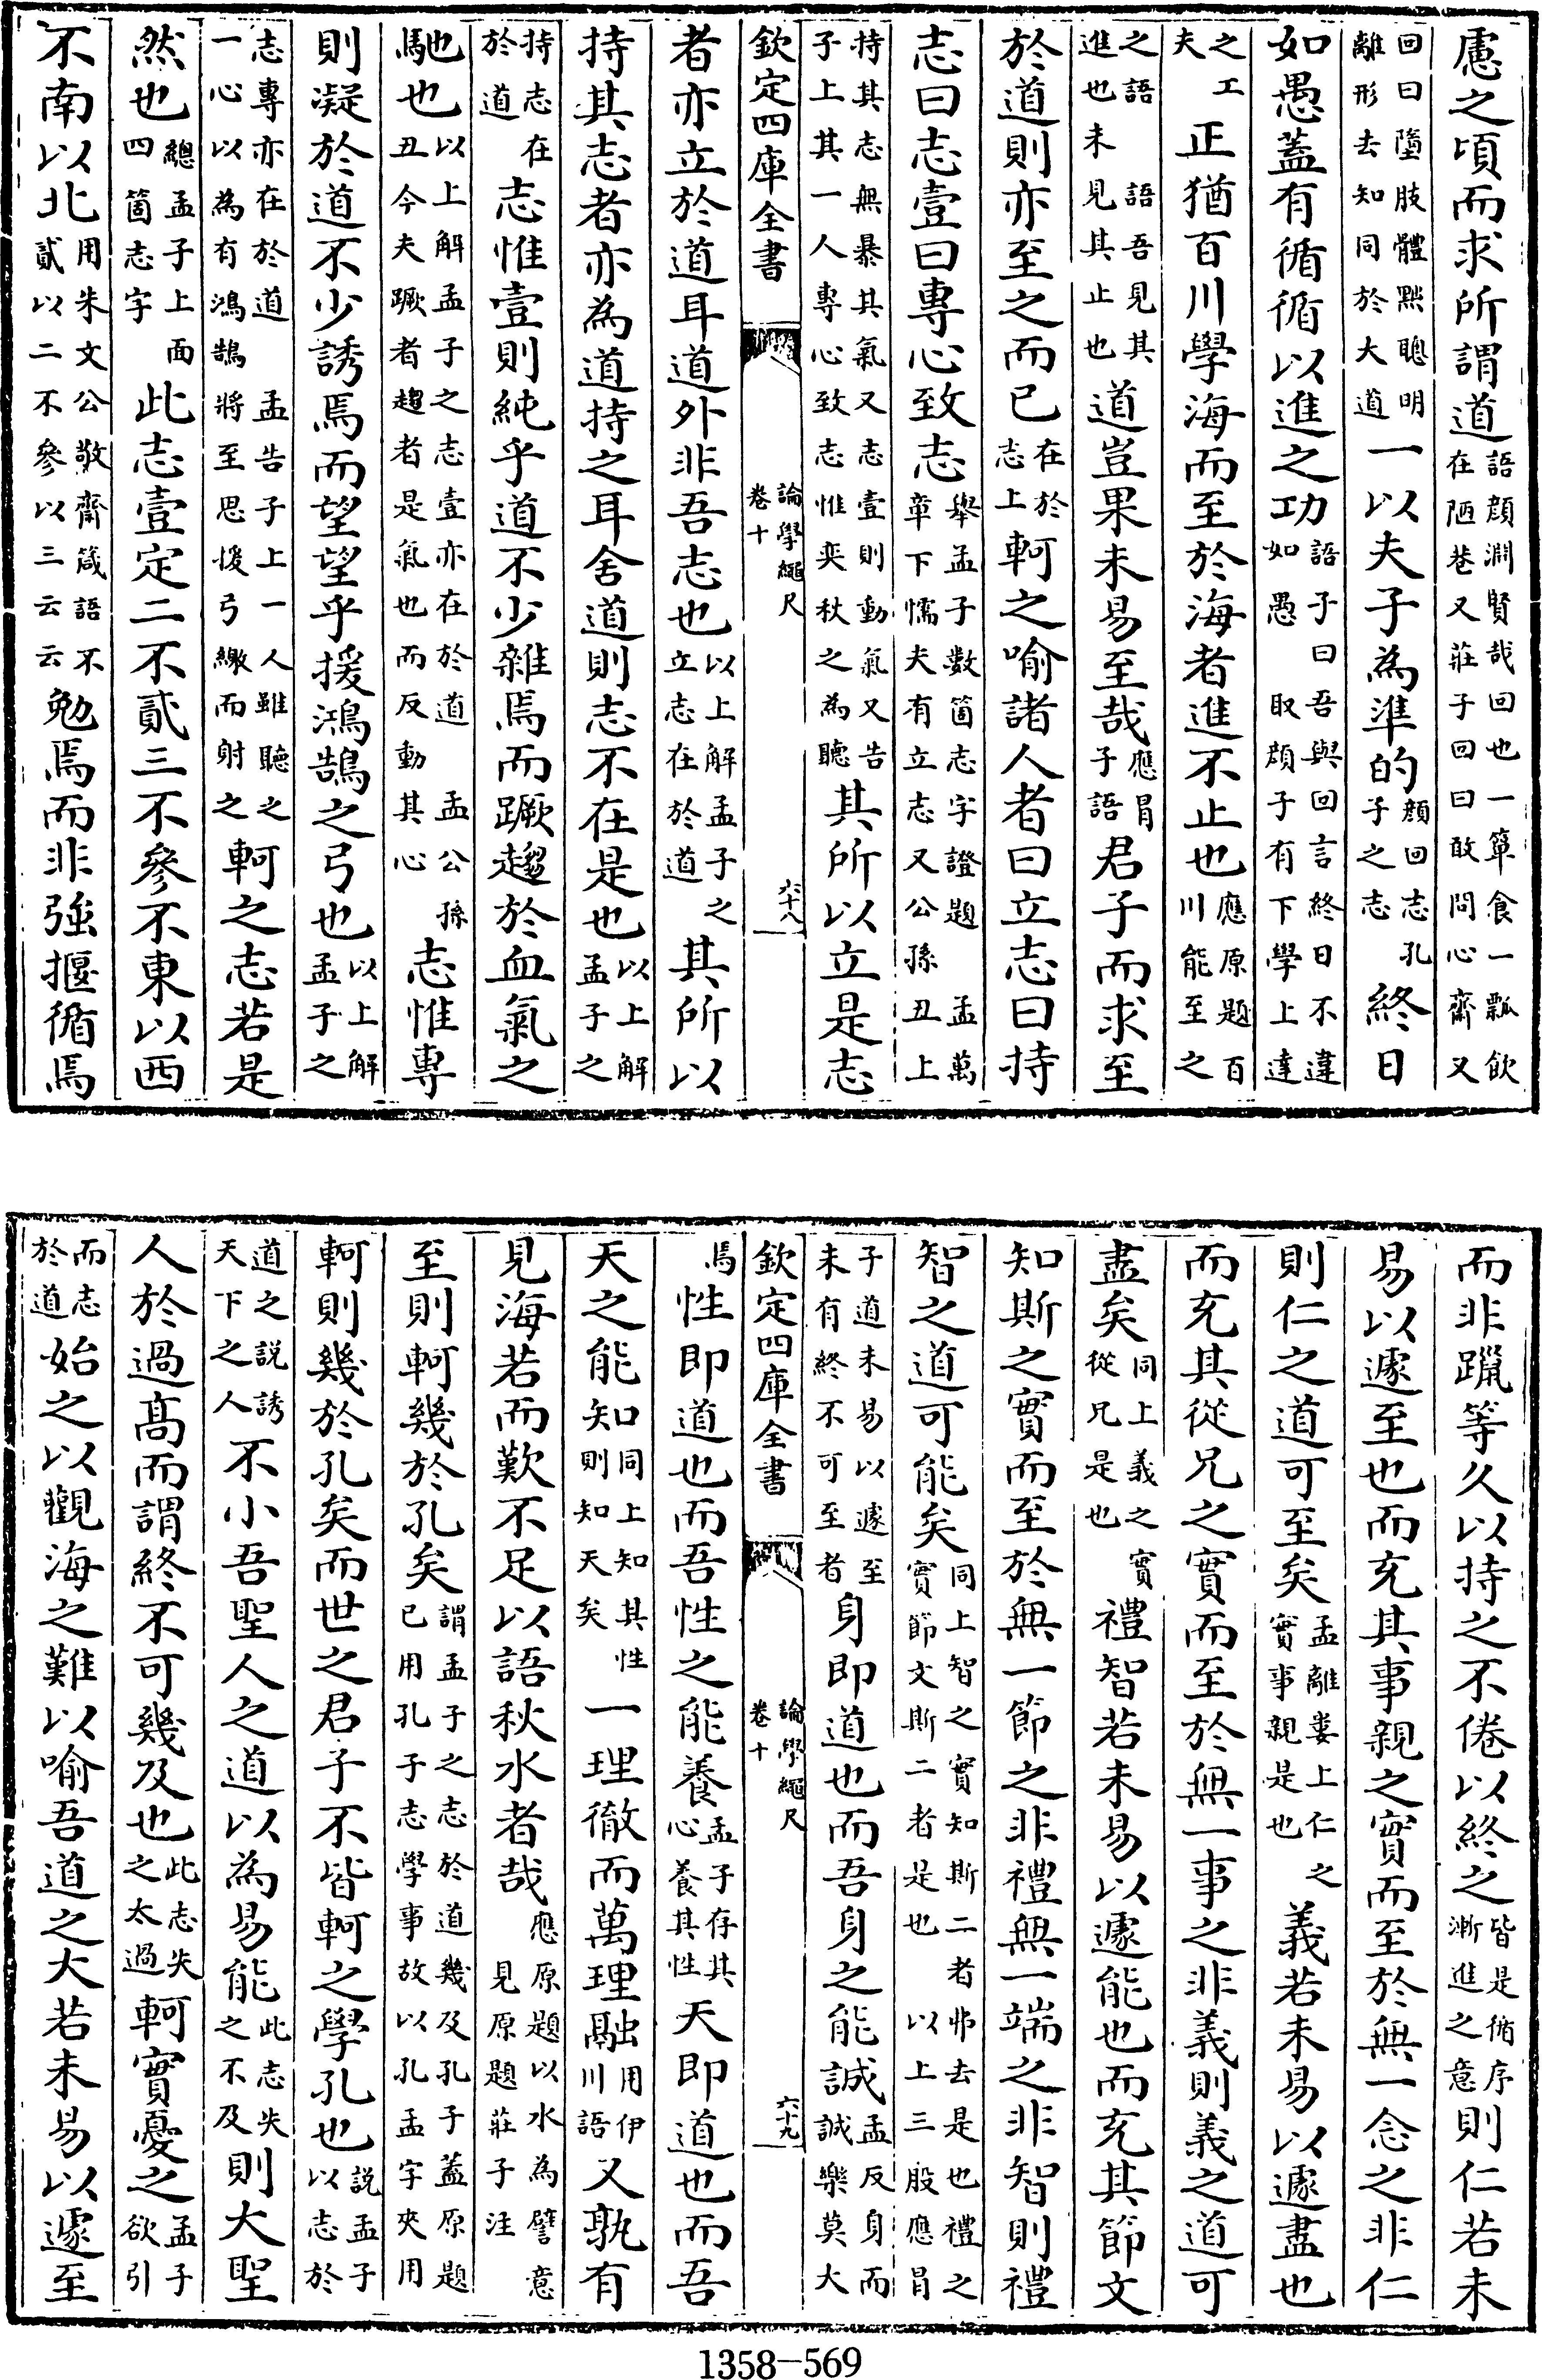 慮之頃而求所謂道語顔淵賢哉回也一簞食一瓢飲在陋巷又莊子回曰敢問心齋又
回曰墮肢體黜聰明離形去知同於大道一以夫子為準的顔回志孔子之志終日
如愚蓋有循循以進之功語子曰吾與回言終日不違如愚取顔子有下學上達
之工夫正猶百川學海而至於海者進不止也應原題百川能至之
之語語吾見其進也未見其止也道豈果未易至哉應冒子語君子而求至
於道則亦至之而已在於志上軻之喻諸人者曰立志曰持
志曰志壹曰專心致志舉孟子數箇志字證題孟萬章下懦夫有立志又公孫丑上
持其志無暴其氣又志壹則動氣又告子上其一人專心致志惟奕秋之為聽其所以立是志
欽定四庫全書 論學繩尺卷十 六十八
者亦立於道耳道外非吾志也以上解孟子之立志在於道其所以
持其志者亦為道持之耳舍道則志不在是也以上解孟子之
持志在於道志惟壹則純乎道不少雜焉而蹶趨於血氣之
馳也以上解孟子之志壹亦在於道孟公孫丑今夫蹶者趨者是氣也而反動其心志惟專
則凝於道不少誘焉而望望乎援鴻鵠之弓也以上解孟子之
志專亦在於道孟告子上一人雖聽之一心以為有鴻鵠將至思援弓繳而射之軻之志若是
然也總孟子上面四箇志字此志壹定二不貳三不參不東以西
不南以北用朱文公敬齋箴語不貳以二不參以三云云勉焉而非強揠循焉
而非躐等久以持之不倦以終之皆是循序漸進之意則仁若未
易以遽至也而充其事親之實而至於無一念之非仁
則仁之道可至矣孟離婁上仁之實事親是也義若未易以遽盡也
而充其從兄之實而至於無一事之非義則義之道可
盡矣同上義之實從兄是也禮智若未易以遽能也而充其節文
知斯之實而至於無一節之非禮無一端之非智則禮
智之道可能矣同上智之實知斯二者弗去是也禮之實節文斯二者是也以上三股應冒
子道未易以遽至未有終不可至者身即道也而吾身之能誠孟反身而誠樂莫大
欽定四庫全書 論學繩尺卷十 六十九
焉性即道也而吾性之能養孟子存其心養其性天即道也而吾
天之能知同上知其性則知天矣一理徹而萬理融用伊川語又孰有
見海若而歎不足以語秋水者哉應原題以水為譬意見原題莊子注
至則軻幾於孔矣謂孟子之志於道幾及孔子蓋原題已用孔子志學事故以孔孟字夾用
軻則幾於孔矣而世之君子不皆軻之學孔也説孟子以志於
道之説誘天下之人不小吾聖人之道以為易能此志失之不及則大聖
人於過髙而謂終不可幾及也此志失之太過軻實憂之孟子欲引
而志於道始之以觀海之難以喻吾道之大若未易以遽至
1358—569